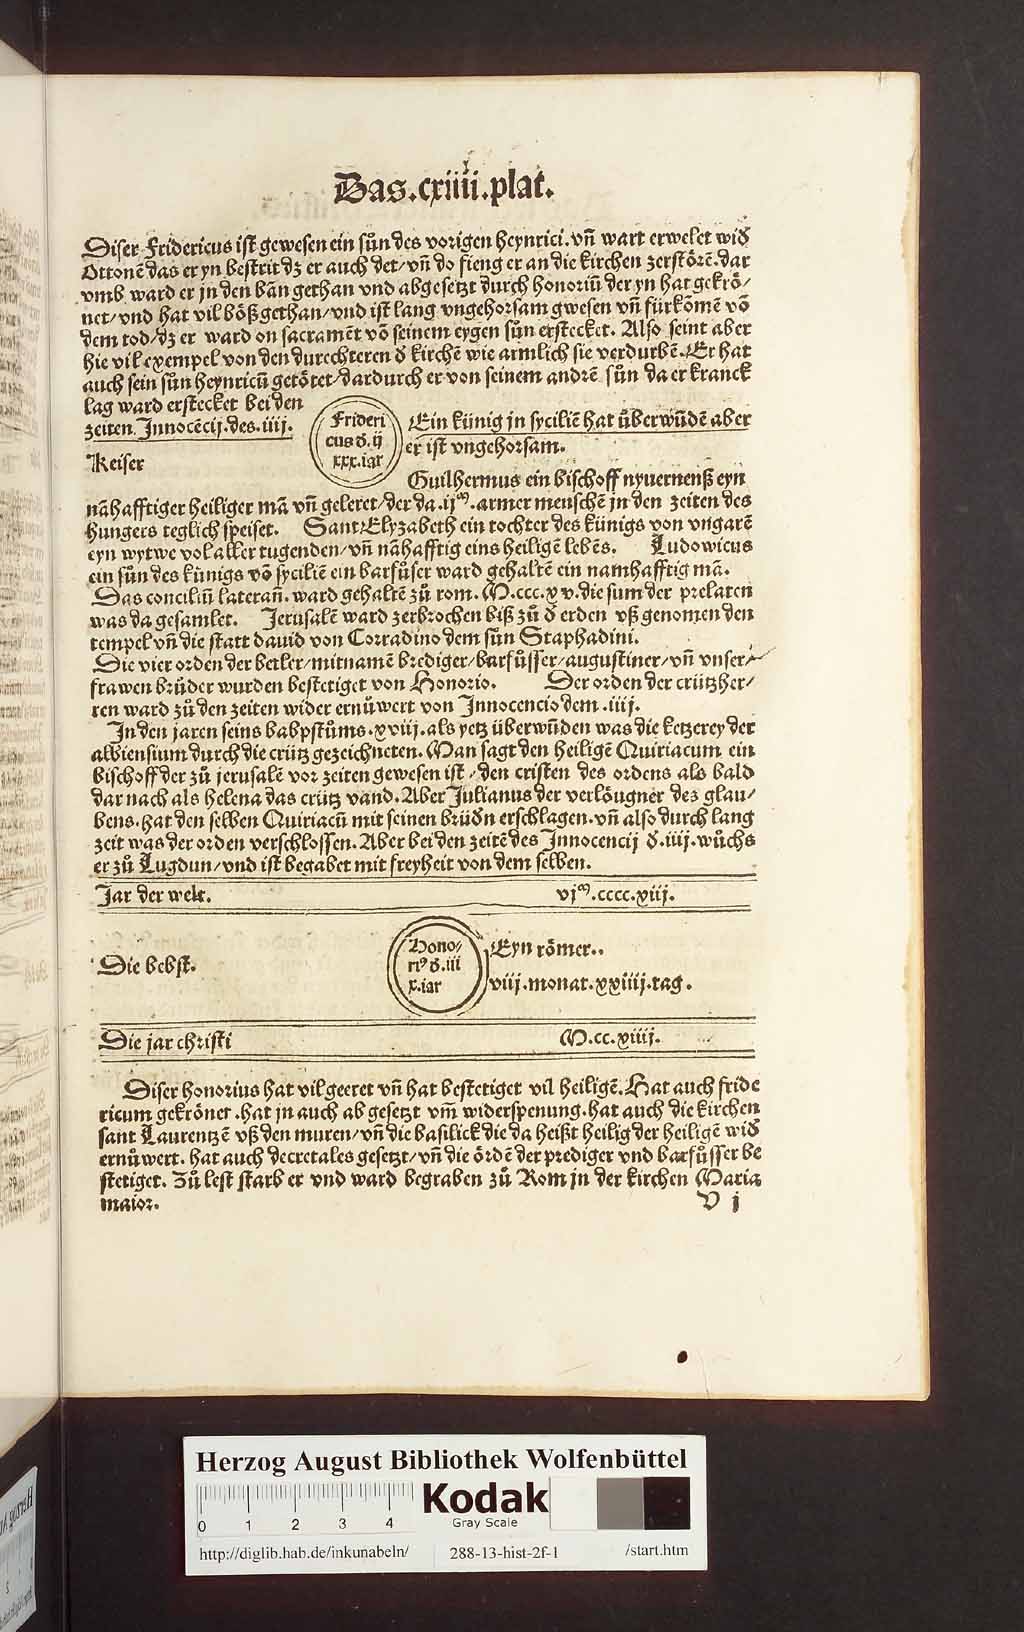 Das.cxiiii.plat.
Diser Fridericus ist gewesen ein sůn des vorigen heynrici. vñ wart erwelet wiď
Ottonē das er yn bestrit dz er auch det/ vñ do fieng er an die kirchen zerstörē. dar
vmb ward er jn den bān gethan vnd abgesetzt durch honoriū der yn hat gekrö/
net/ vnd hat vil bößgethan/ vnd ist lang vngehorsam gwesen vñ fürkōmē vō
dem tod/ dz er ward on sacramēt vō seinem eygen sůn erstecket. Also seint aber
hie vil exempel von den durechteren ď kirchē wie armlich sie verdurbē. Er hat
auch sein sůn heynricū getötet/ dardurch er von seinem andrē sůn da er kranck
lag ward erstecket bei den
zeiten Innocēcij.des.iiij.
Keiser
Frideri
cus ď.ij
xxx.iar
Ein künig jn syciliē hat überwūdē aber
er ist vngehorsam.
Guilhermus ein bischoff nyuernenß eyn
nāhafftiger heiliger mā vñ geleret/ der da .ijᵐ. armer menschē jn den zeiten des
hungers teglich speiset. Sant Elyzabeth ein tochter des künigs von vngarē
eyn wytwe vol aller tugenden/ vñ nāhafftig eins heiligē lebēs. Ludowicus
ein sůn des künigs vō syciliē ein barfůser ward gehaltē ein namhafftig mā.
Das conciliū laterañ. ward gehaltē zů rom. M.ccc.xv. die sum der prelaten
was da gesamlet. Jerusalē ward zerbrochen biß zů ď erden vß genomen den
tempel vñ die statt dauid von Corradino dem sůn Staphadini.
Die vier orden der betler/ mitnamē brediger/ barfůsser/ augustiner/ vñ vnser
frawen brüder wurden bestetiget von Honorio. Der orden der crützher/
ren ward zů den zeiten wider ernüwert von Innocencio dem .iiij.
In den jaren seins babpstůms .xviij. als yetz überwūden was die ketzerey der
albiensium durch die crütz gezeichneten. Man sagt den heiligē Quiriacum ein
bischoff der zů jerusalē vor zeiten gewesen ist/ den cristen des ordens als bald
dar nach als helena das crütz vand. Aber Julianus der verlöugner des glau/
bens. hat den selben Quiriacū mit seinen brüďn erschlagen. vñ also durch lang
zeit was der orden verschlossen. Aber bei den zeitē des Innocencij ď.iiij. wůchs
er zů Lugdun/ vnd ist begabet mit freyheit von dem selben.
Jar der welt. vjᵐ.cccc.xiij.
Die bebst.
Hono/
riꝰ ď.iii
x.iar
Eyn römer..
viij.monat.xxiiij.tag.
Die jar christi M.cc.xiiij.
Diser honorius hat vil geeret vñ hat bestetiget vil heiligē. Hat auch fride
ricum gekrönet .hat jn auch ab gesetzt vm̄ widerspenung. hat auch die kirchen
sant Laurentzē vß den muren/ vñ die basilick die da heißt heilig der heiligē wiď
ernüwert. hat auch decretales gesetzt/ vñ die ördē der prediger vnd barfůsser be
stetiget. Zů lest starb er vnd ward begraben zů Rom jn der kirchen Maria
maior. V j
Herzog August Bibliothek Wolfenbüttel
0 1 2 3 4
Kodak
Gray Scale
http://diglib.hab.de/inkunabeln/ 288-13-hist-2f-1 /start.htm